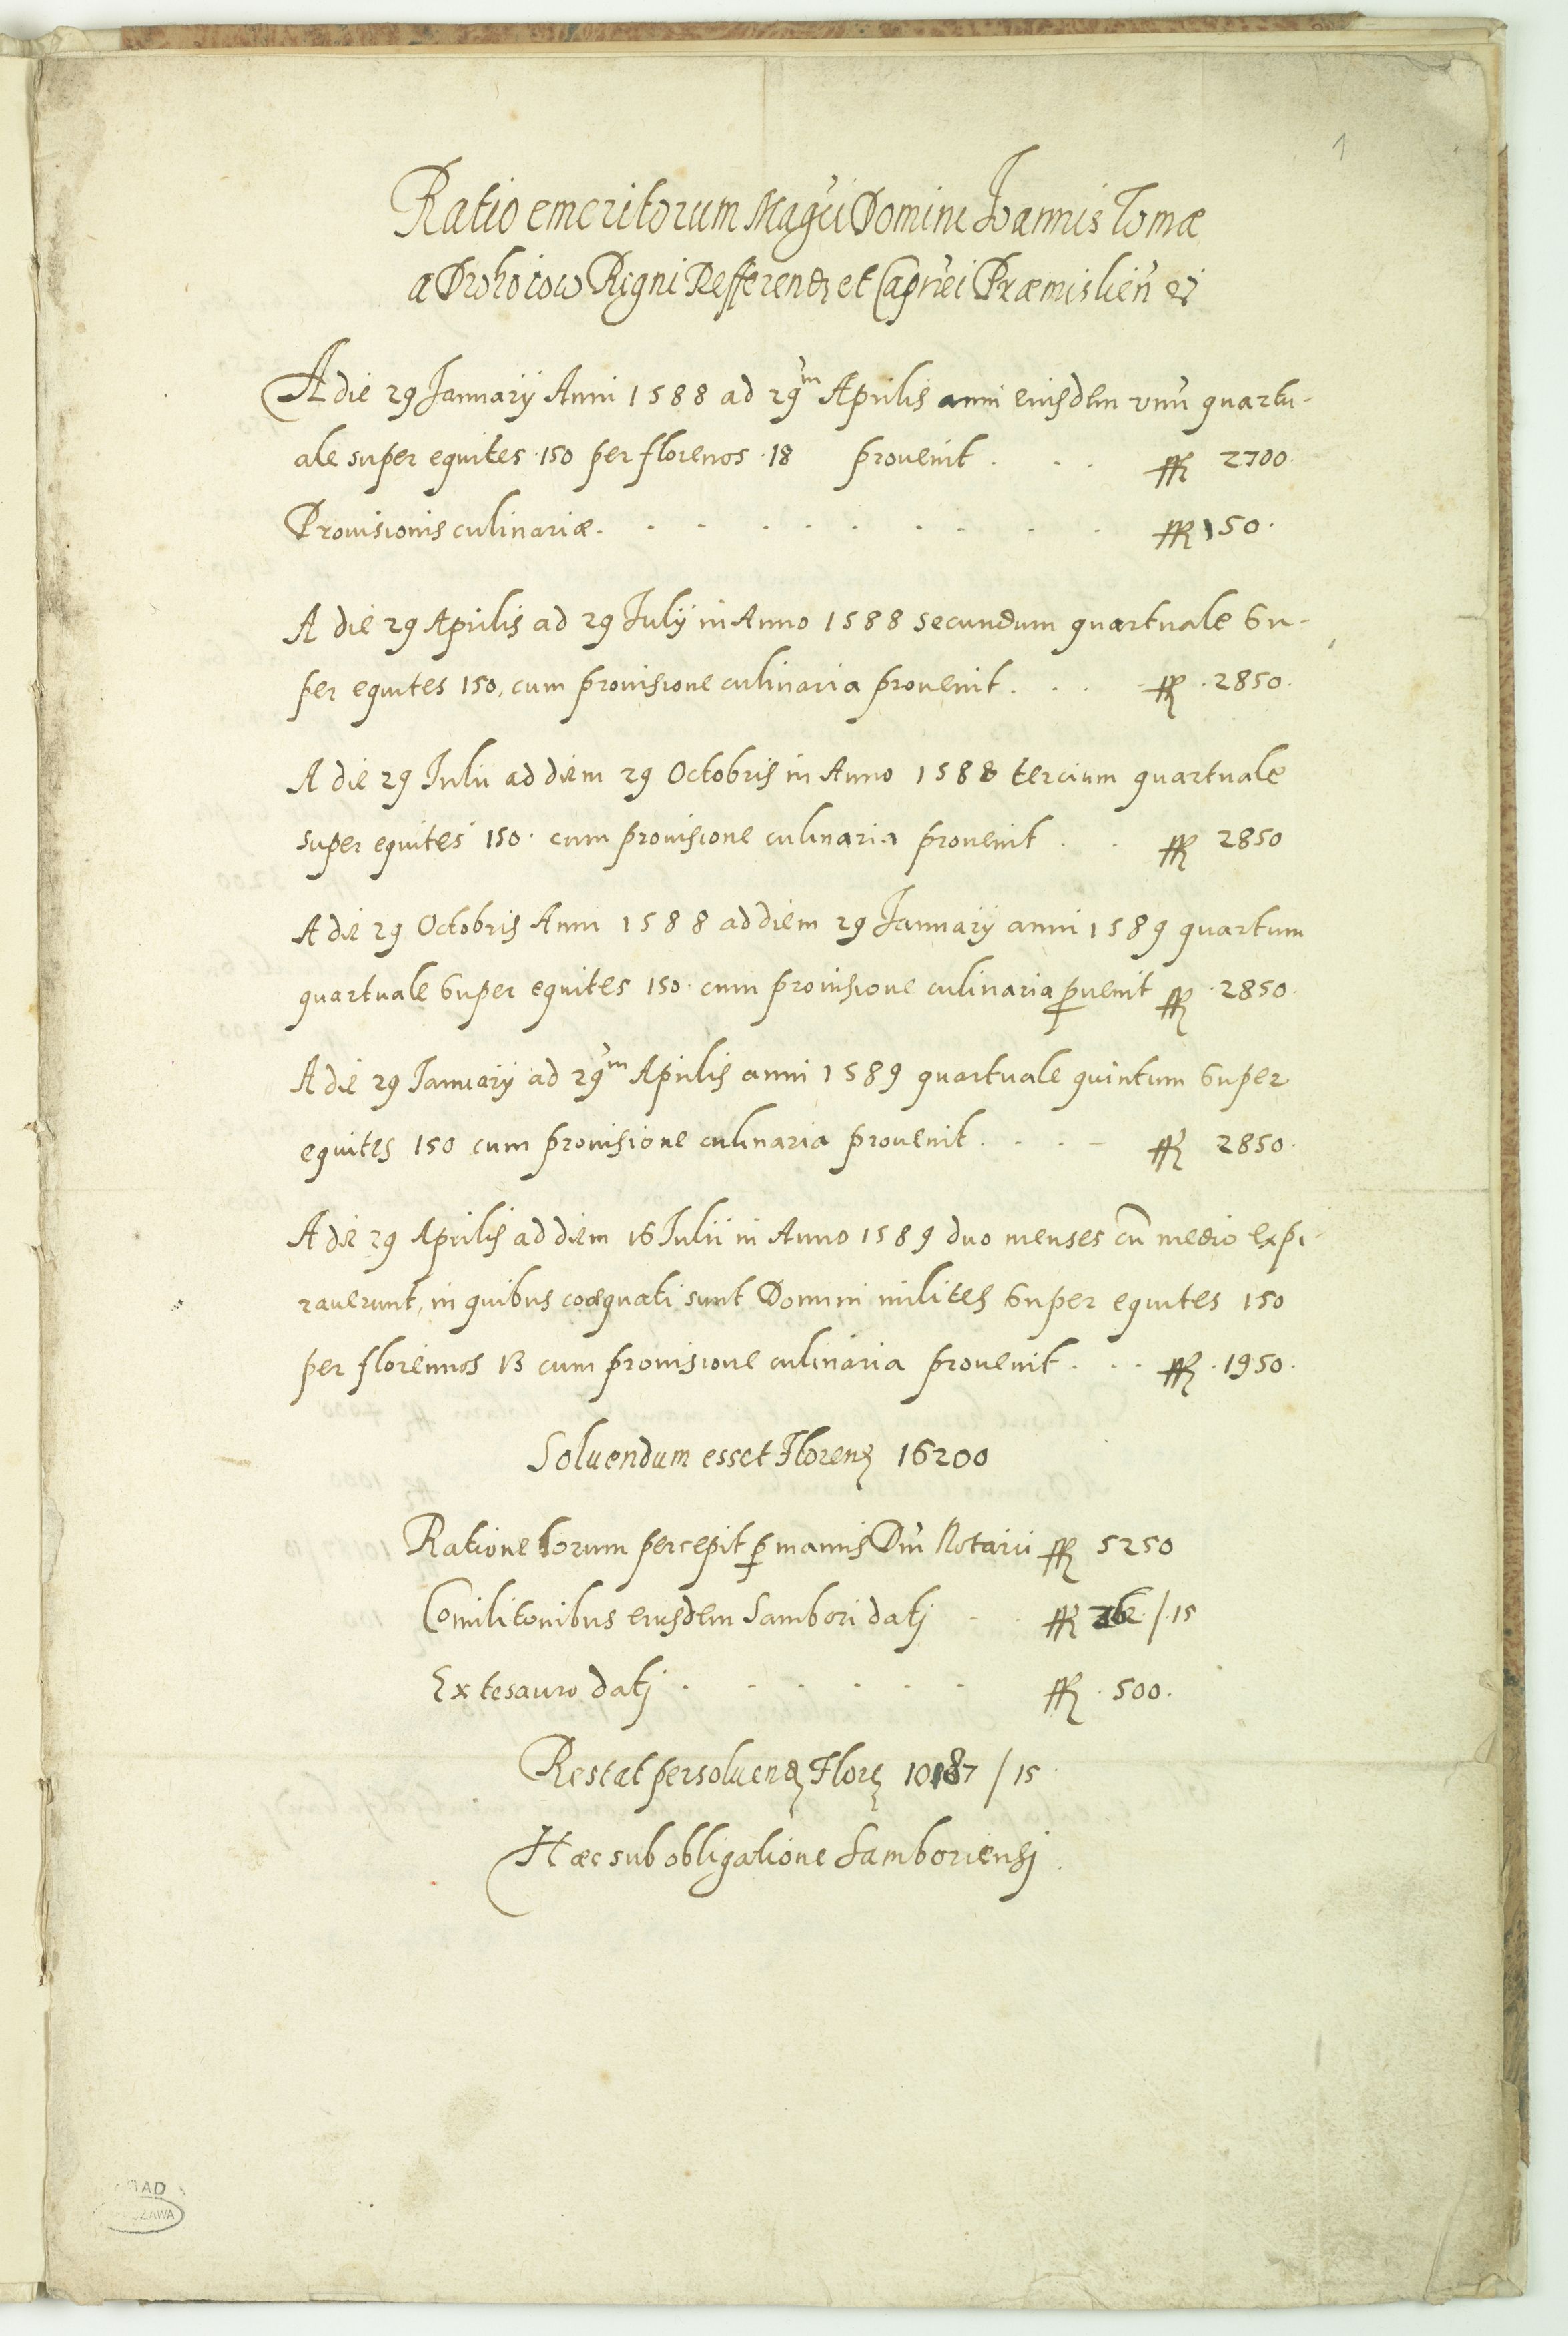 1
Ratio emeritorum Magci Domini Ioannis Tomæ
a Drohoiow Regni Refferend et Capnei Præmislien etc
A die 29 January Anni 1588 ad 29m Aprilis anni eiusdem vnu quartu-
ale super equites 150 per florenos 18 prouenit . . . ff 2700
Prouisionis culinariæ . . . . . . . . . ff 150
A die 29 Aprilis ad 29 July in Anno 1588 secundum quartuale su-
per equites 150, cum prouisione culinaria prouenit . . . ff 2850
A die 29 Iulii ad diem 29 Octobris in Anno 1588 tercium quartuale
super equites 150 cum prouisione culinaria prouenit . . ff 2850
A die 29 Octobris Anni 1588 ad diem 29 January anni 1589 quartum
quartuale super equites 150 cum prouisione culinaria puenit ff 2850
A die 29 January ad 29m Aprilis anni 1589 quartuale quintum super
equites 150 cum prouisione culinaria prouenit . . . - ff 2850
A die 29 Aprilis ad diem 16 Iulii in Anno 1589 duo menses cu medio expi-
rauerunt, in quibus coæquati sunt Domini milites super equites 150
per florennos 13 cum prouisione culinaria prouenit . . . ff 1950
Soluendum esset Floren 16200
Ratione horum percepit p manus Dni Notarii ff 5250
Comilitonibus eiusdem Sambori datj . . ff 262 / 15
Ex tesauro datj . . . . . . ff 500
Restat persoluend Flore 10187 / 15
Hæc sub obligatione Samboriensj
AGAD
WARSZAWA